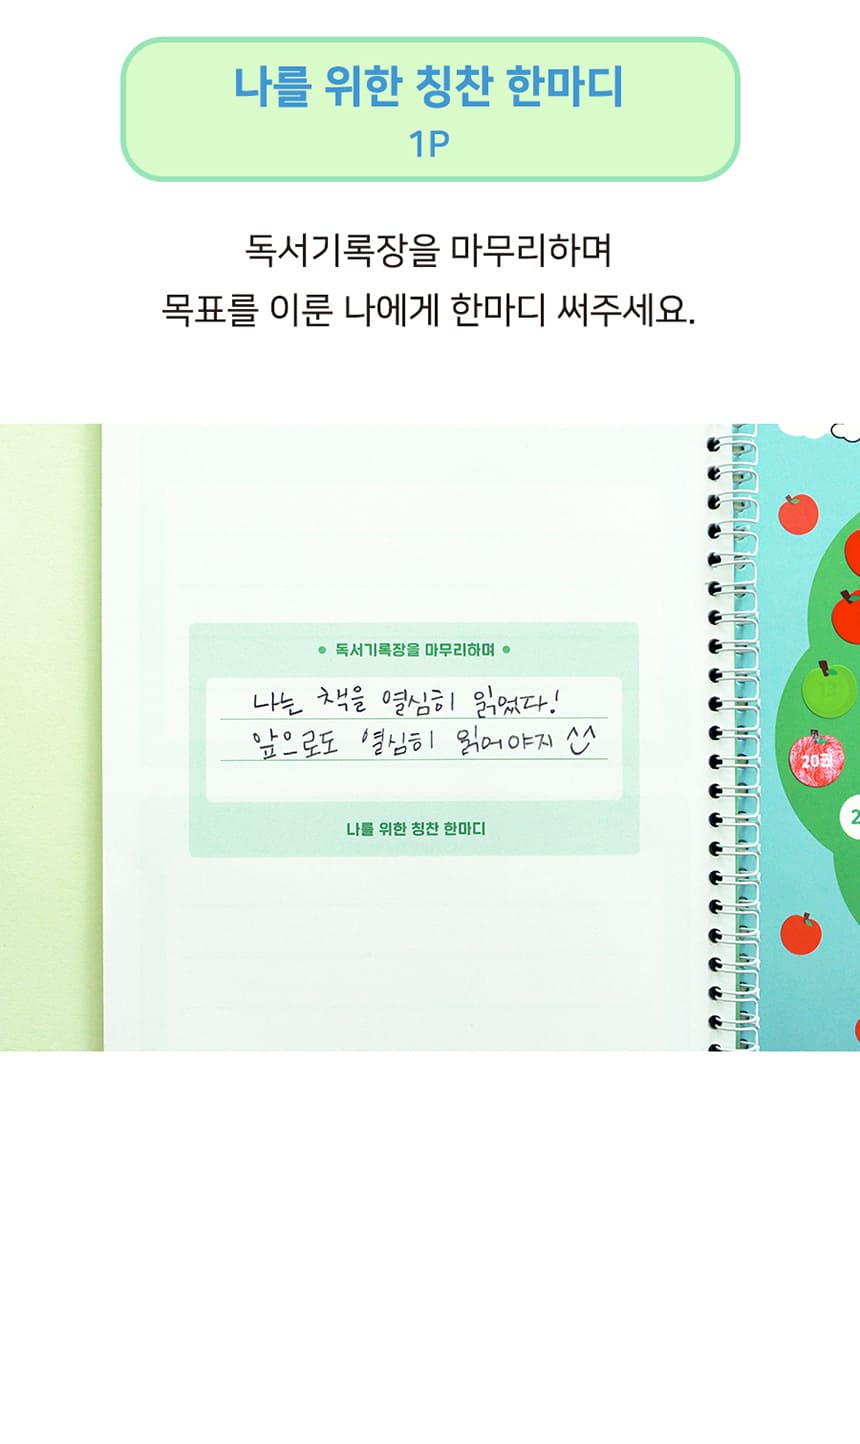 나를 위한 칭찬 한마디
1P
독서기록장을 마무리하며
목표를 이룬 나에게 한마디 써주세요.
• 독서기록장을 마무리하며 •
나는 책을 열심히 읽었다!
앞으로도 열심히 읽어야지 ^^
나를 위한 칭찬 한마디
13
20권
2